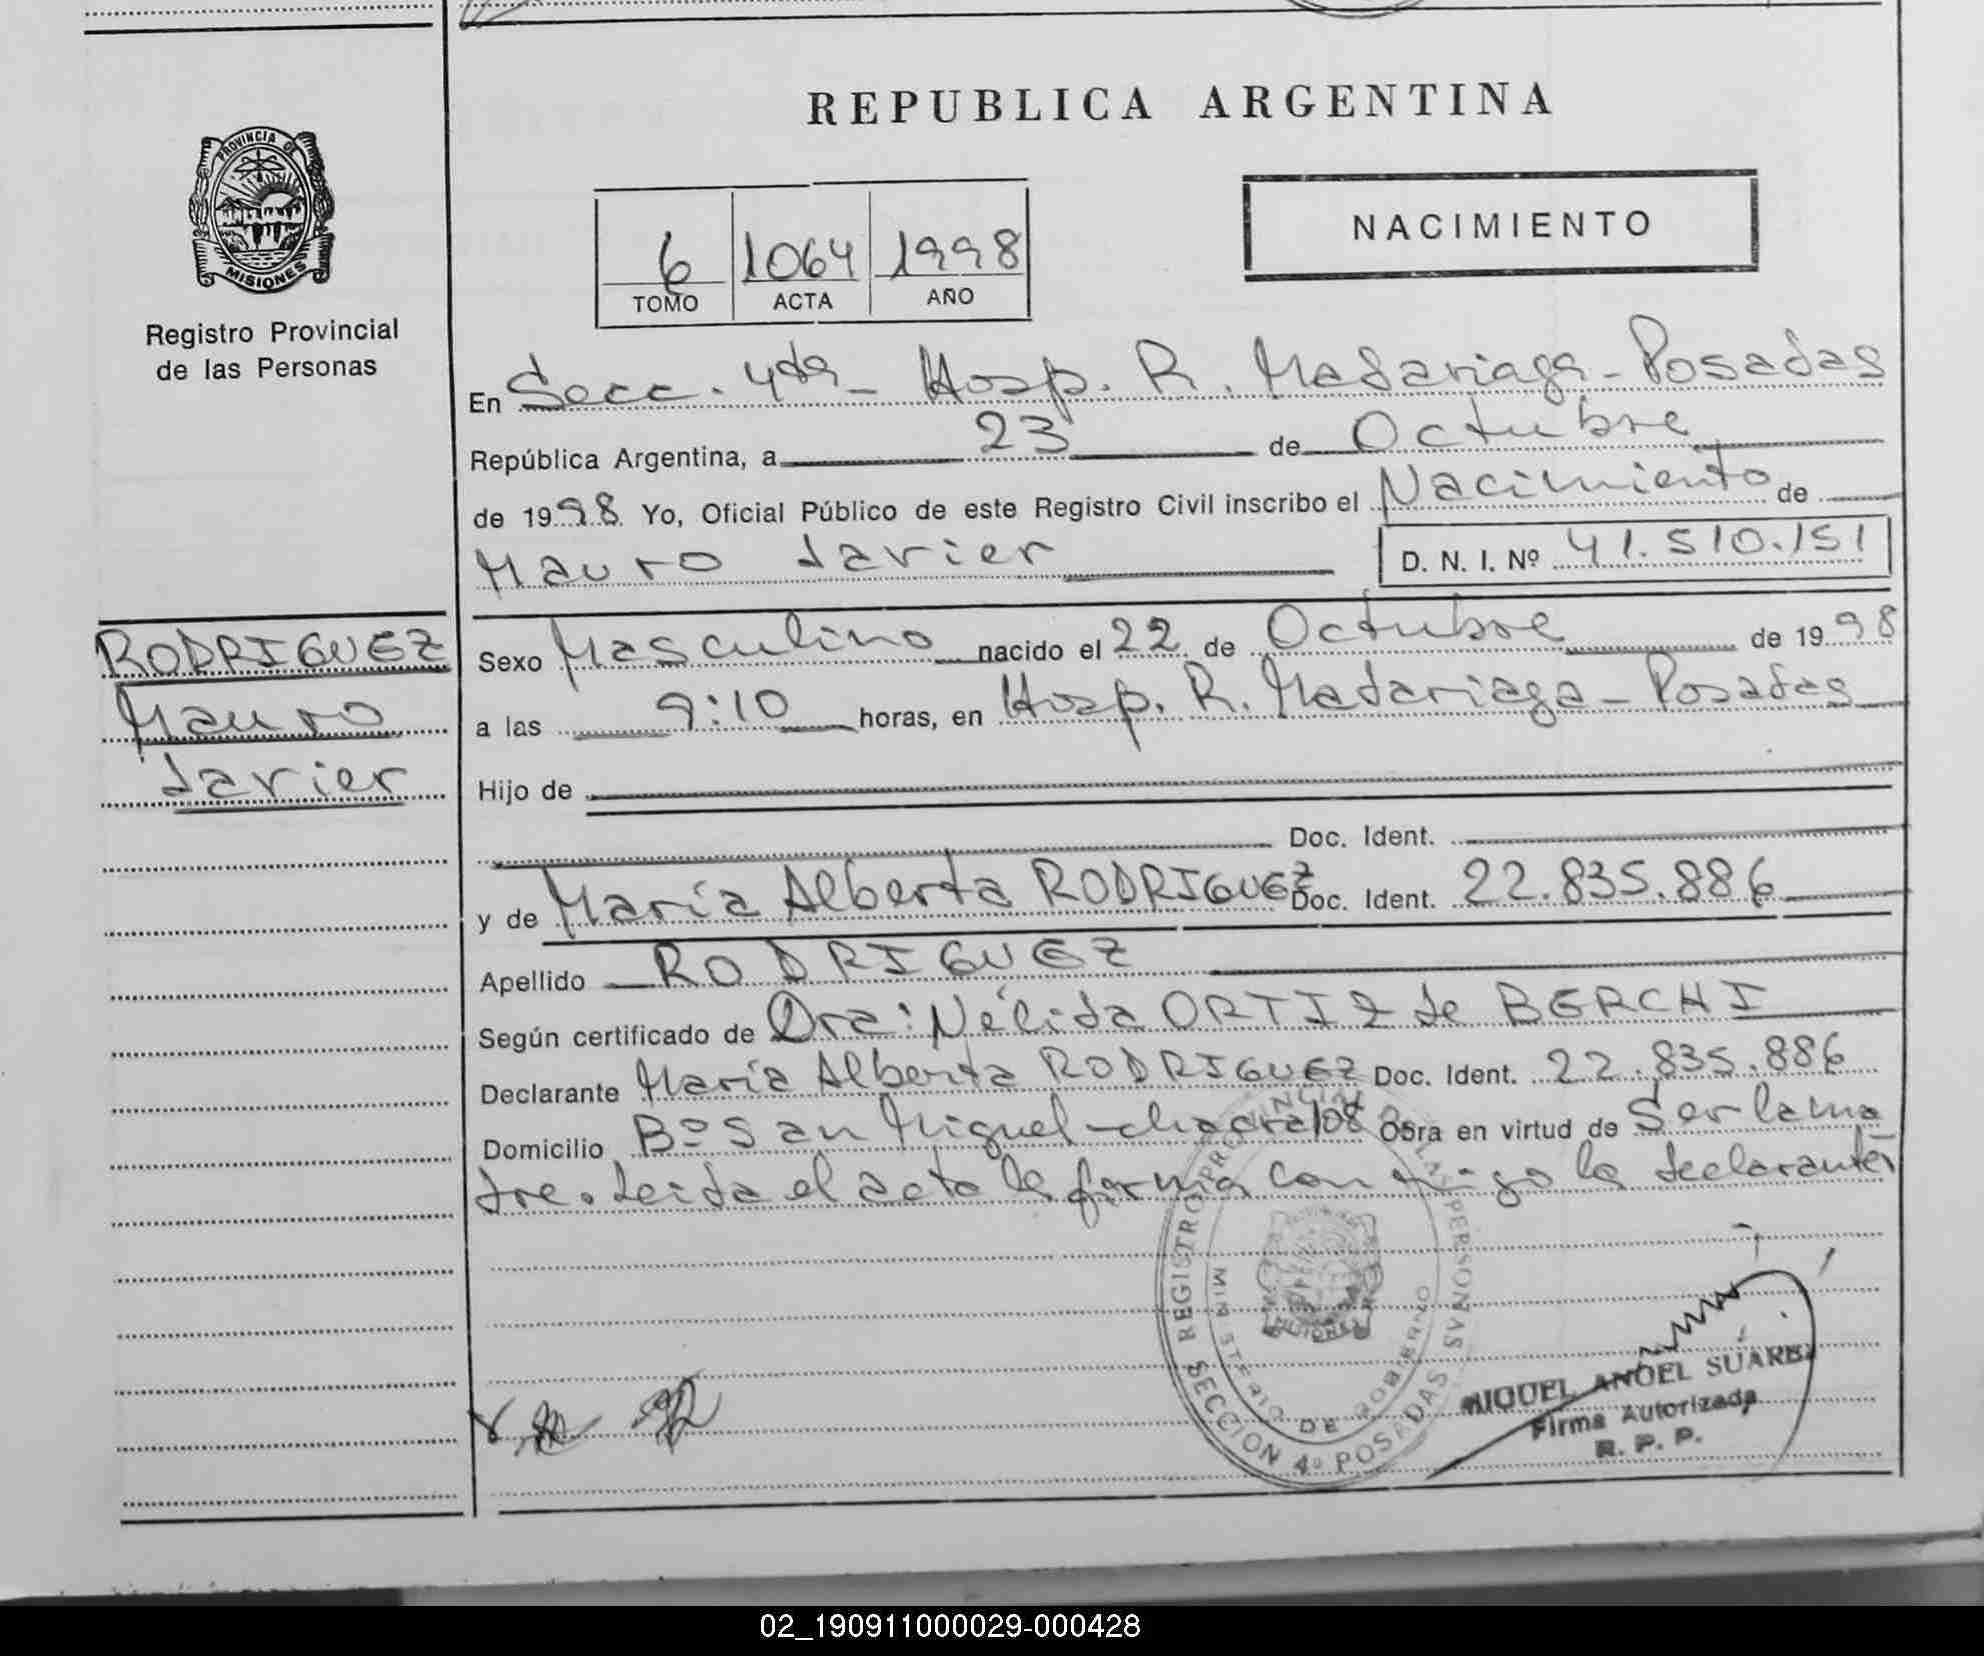 REPUBLICA ARGENTINA
PROVINCIA DE
MISIONES
Registro Provincial
de las Personas
NACIMIENTO
6 1064 1998
TOMO ACTA AÑO
En Secc. 4ta - Hosp. R. Madariaga - Posadas
República Argentina, a 23 de Octubre
de 1998 Yo, Oficial Público de este Registro Civil inscribo el Nacimiento de
Mauro Javier D. N. I. Nº 41.510.151
RODRIGUEZ
Mauro
Javier
Sexo Masculino nacido el 22 de Octubre de 1998
a las 9:10 horas, en Hosp. R. Madariaga - Posadas
Hijo de
Doc. Ident.
y de María Alberta RODRIGUEZ Doc. Ident. 22.835.886
Apellido RODRIGUEZ
Según certificado de Dra: Nélida ORTIZ de BERCHI
Declarante María Alberta RODRIGUEZ Doc. Ident. 22.835.886
Domicilio Bº San Miguel - chacra 108 Obra en virtud de Ser la ma
dre. Leida el acta la firma conmigo la declarante
REGISTRO PROVINCIAL DE LAS PERSONAS
MINISTERIO DE GOBIERNO
MISIONES
SECCION 4º POSADAS
MIGUEL ANGEL SUAREZ
Firma Autorizada
R. P. P.
02_190911000029-000428